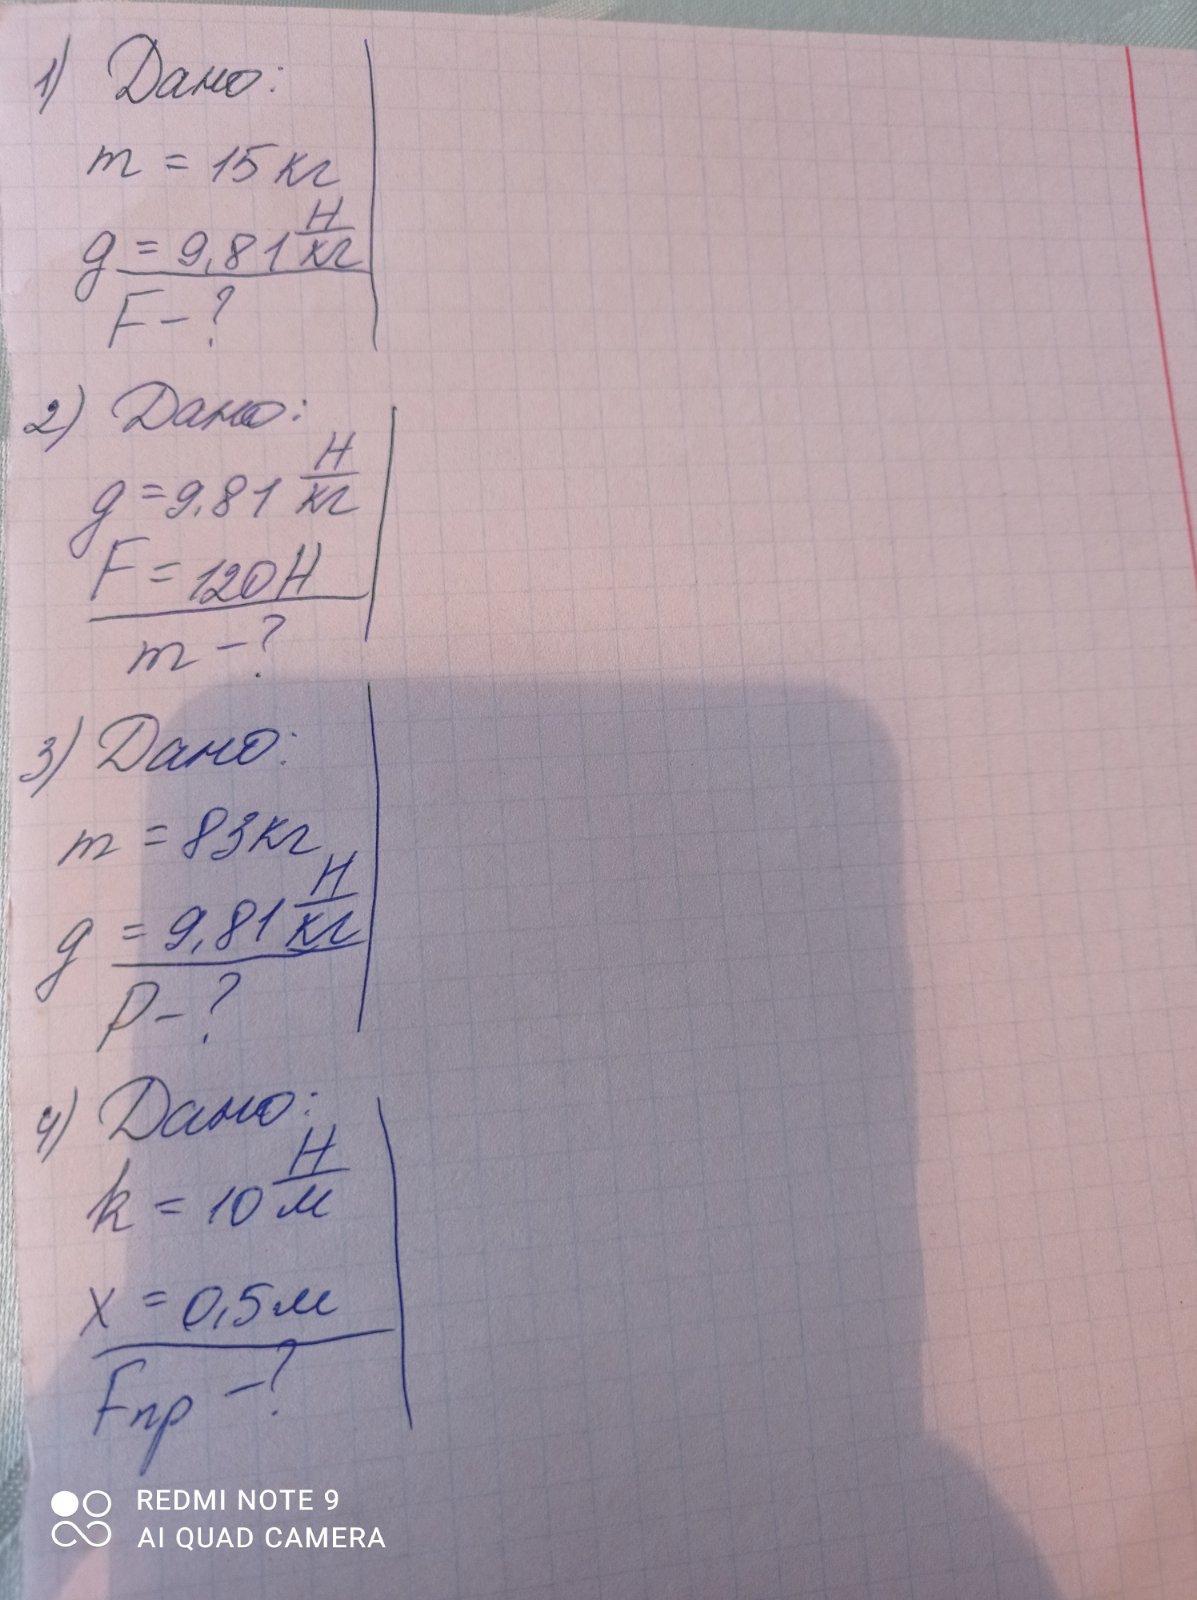 1) Дано:
m = 15 кг
g = 9,81 Н/кг
F - ?
2) Дано:
g = 9,81 Н/кг
F = 120 Н
m - ?
3) Дано:
m = 83 кг
g = 9,81 Н/кг
P - ?
4) Дано:
k = 10 Н/м
x = 0,5 м
Fпр - ?
REDMI NOTE 9
AI QUAD CAMERA